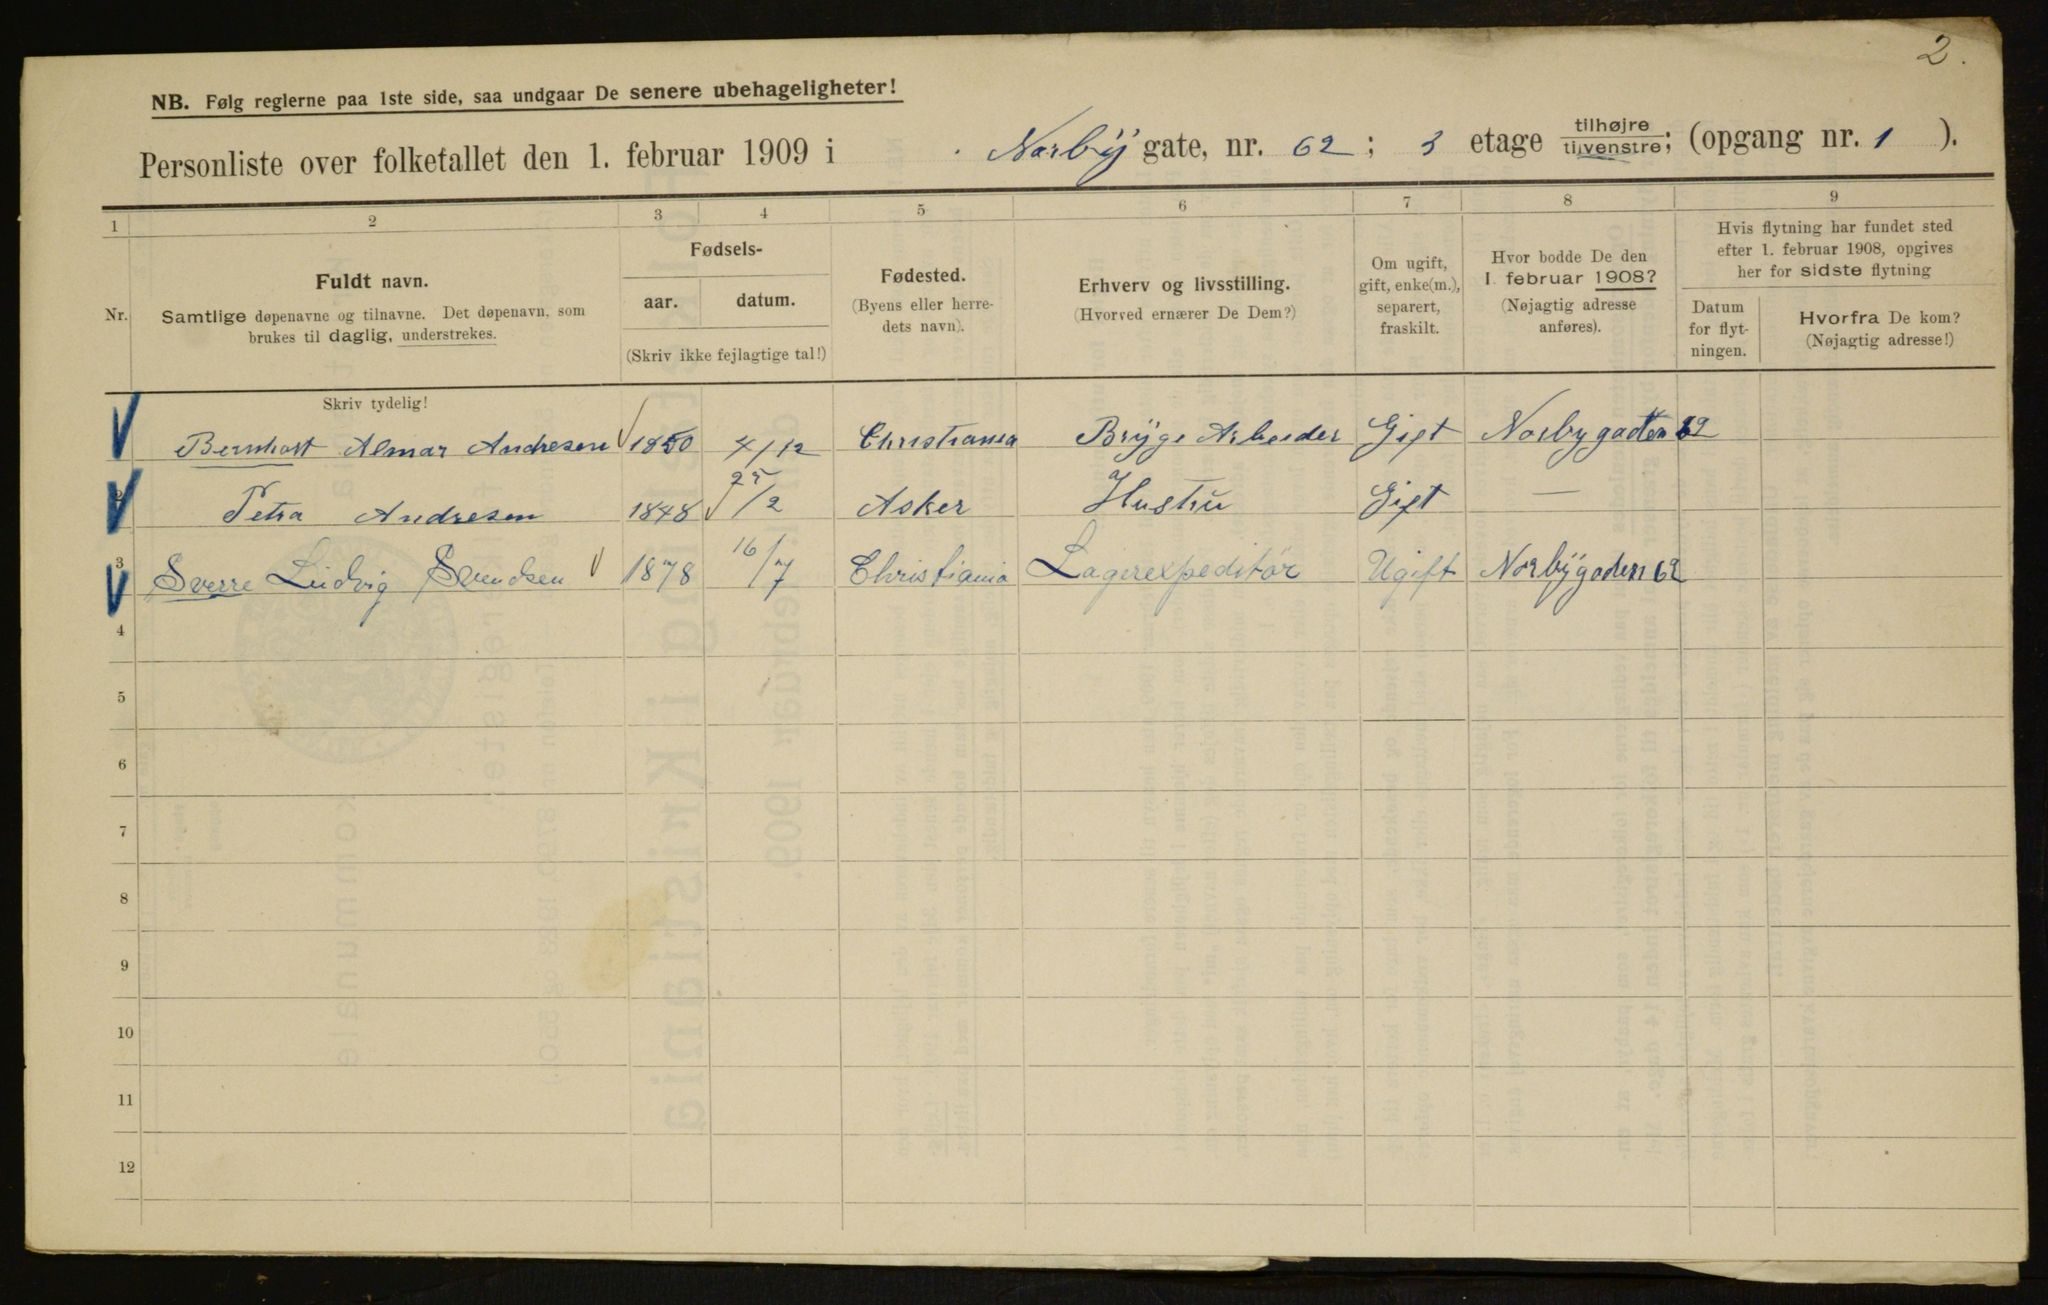 2.
NB. Følg reglerne paa 1ste side, saa undgaar De senere ubehageligheter!
Personliste over folketallet den 1. februar 1909 i Norbÿ gate, nr. 62 ; 3 etage tilhøjre tilvenstre; (opgang nr. 1 ).
1 2 3 4 5 6 7 8 9
Nr.
Fuldt navn.
Samtlige døpenavne og tilnavne. Det døpenavn, som
brukes til daglig, understrekes.
Skriv tydelig!
Fødsels-
aar. datum.
(Skriv ikke fejlagtige tal!)
Fødested.
(Byens eller herre-
dets navn).
Erhverv og livsstilling.
(Hvorved ernærer De Dem?)
Om ugift,
gift, enke(m.),
separert,
fraskilt.
Hvor bodde De den
1. februar 1908?
(Nøjagtig adresse
anføres).
Hvis flytning har fundet sted
efter 1. februar 1908, opgives
her for sidste flytning
Datum
for flyt-
ningen.
Hvorfra De kom?
(Nøjagtig adresse!)
Bernhart Almar Andresen 1850 4/12 Christiania Brÿge Arbeider Gift Norbygadten 62
2 Petra Andresen 1848 25/2 Asker Hustru Gift —
3 Sverre Ludvig Svendsen 1878 16/7 Christiania Lagerexpeditör Ugift Norbÿgaden 62
4
5
6
7
8
9
10
11
12